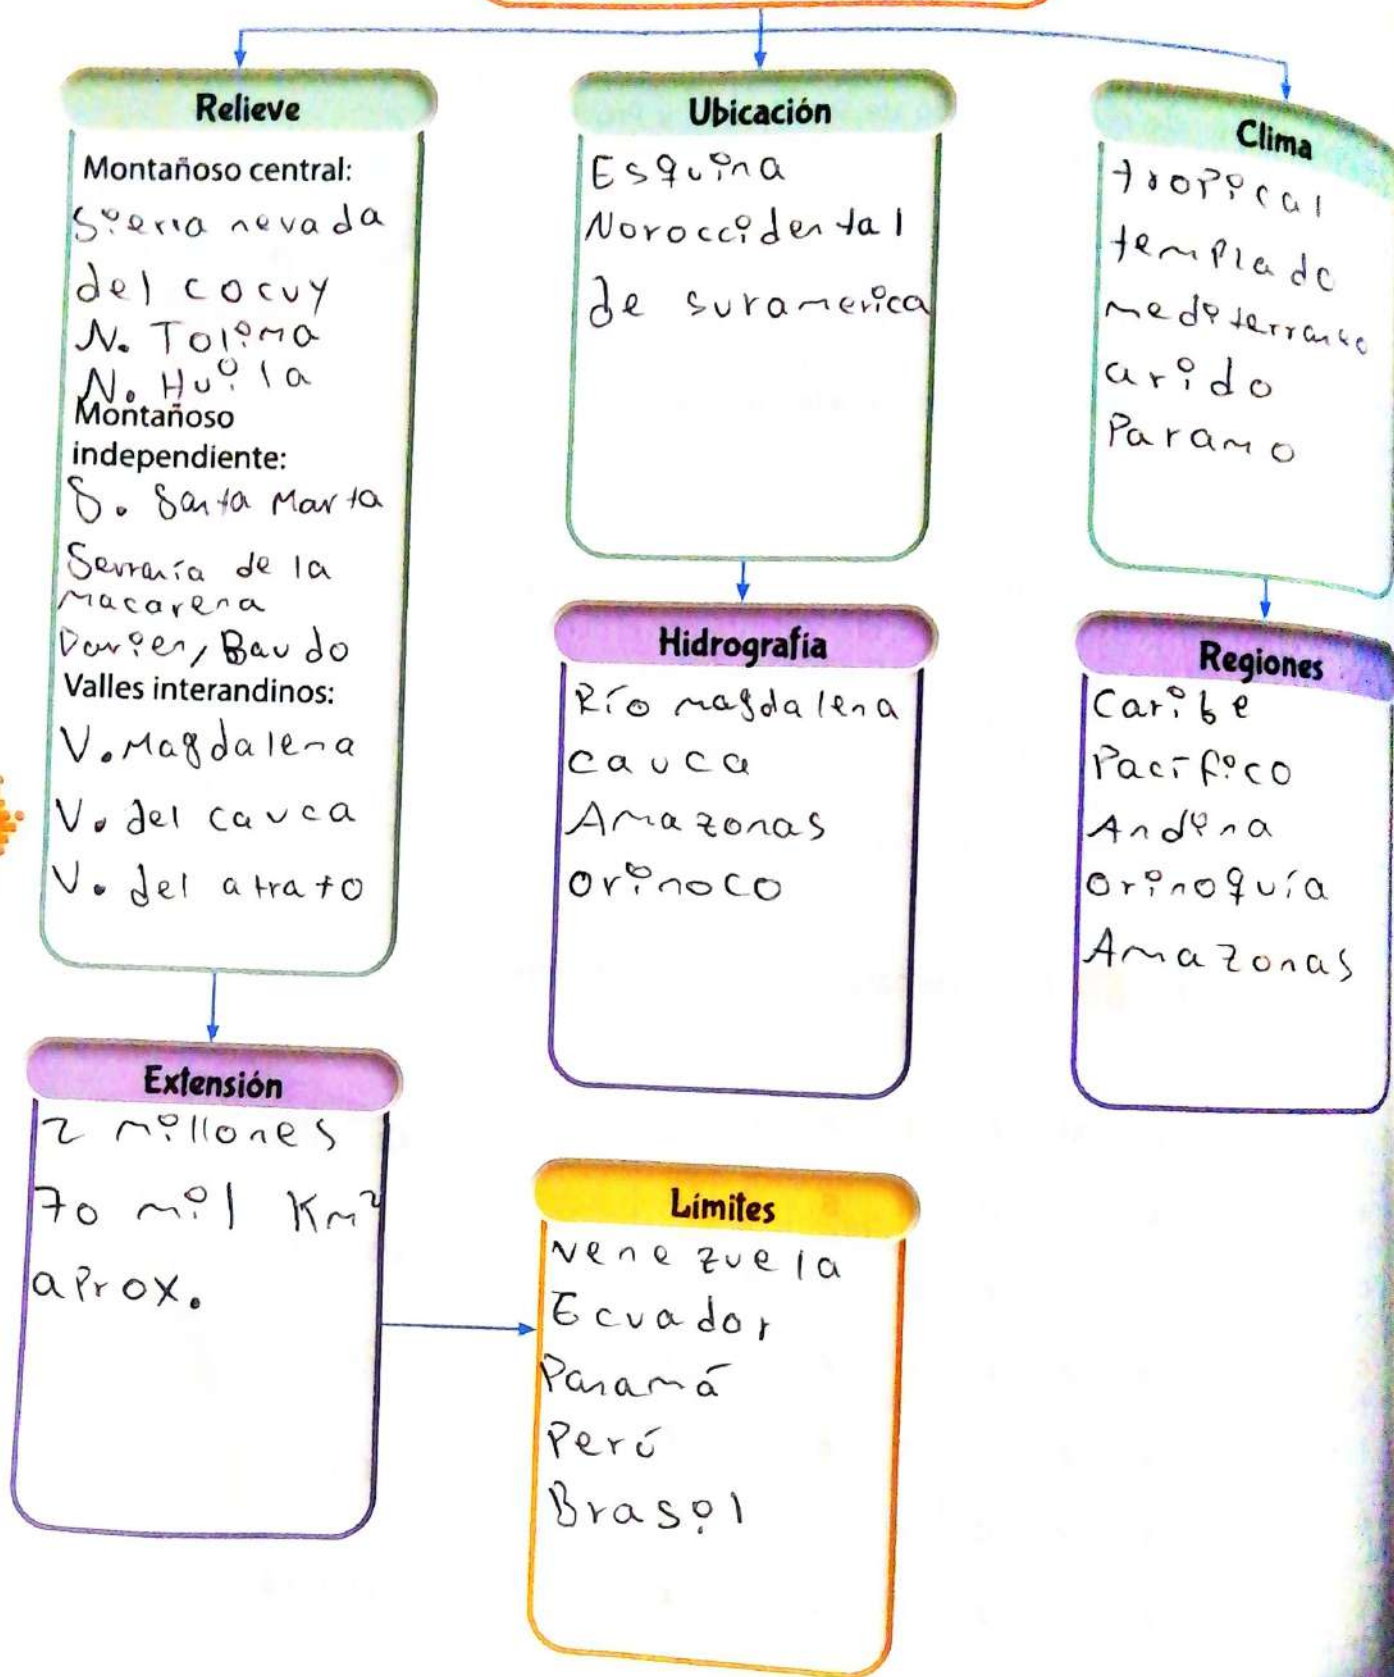 Relieve
Montañoso central:
Sierra nevada
del cocuy
N. Tolima
N. Huila
Montañoso
independiente:
S. Santa Marta
Serranía de la
Macarena
Darien, Baudo
Valles interandinos:
V. Magdalena
V. del cauca
V. del atrato
Extensión
2 millones
70 mil Km²
aprox.
Ubicación
Esquina
Noroccidental
de suramerica
Hidrografía
Río magdalena
cauca
Amazonas
orinoco
Límites
venezuela
Ecuador
Panamá
Perú
Brasil
Clima
tropical
templado
mediterraneo
arido
Paramo
Regiones
Caribe
Pacífico
Andina
orinoquía
Amazonas